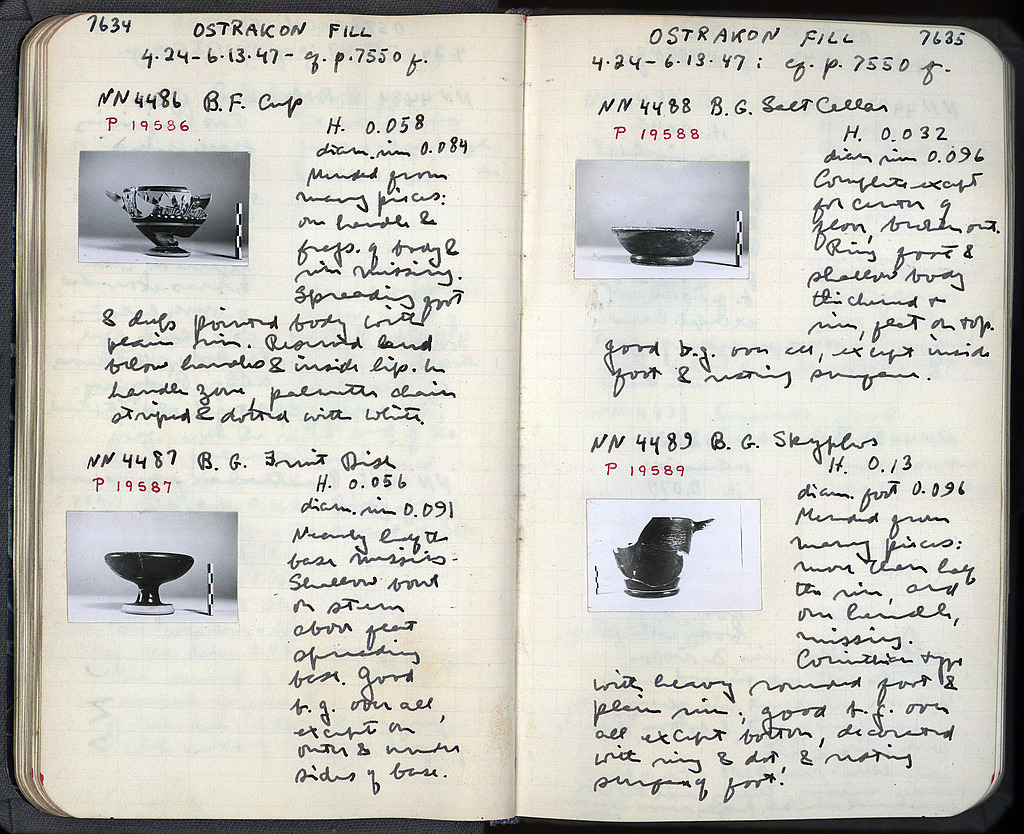 7634
OSTRAKON FILL
4.24-6.13.47 - cf. p. 7550 f.
NN 4486 B.F. Cup
P 19586
H. 0.058
diam. rim 0.084
Mended from
many pieces:
one handle &
frags. of body &
rim missing.
Spreading foot
& deep pointed body with
plain rim. Reserved band
below handles & inside lip. In
handle zone, palmette chain
striped & dotted with white.
NN 4487 B.G. Fruit Dish
P 19587
H. 0.056
diam. rim 0.091
Nearly half the
base missing.
Shallow bowl
on stem
above flat
spreading
base. Good
b.g. over all,
except on
outer & under
sides of base.
OSTRAKON FILL
7635
4.24-6.13.47: cf. p. 7550 f.
NN 4488 B.G. Salt Cellar
P 19588
H. 0.032
diam rim 0.096
Complete except
for center of
floor, broken out.
Ring foot &
shallow body
thickened
rim, flat on top.
good b.g. over all, except inside
foot & resting surface.
NN 4489 B.G. Skyphos
P 19589
H. 0.13
diam. foot 0.096
Mended from
many pieces:
more than half
the rim, and
one handle,
missing.
Corinthian type
with heavy rounded foot &
plain rim; good b.g. over
all except bottom, decorated
with ring & dot, & resting
surface of foot.